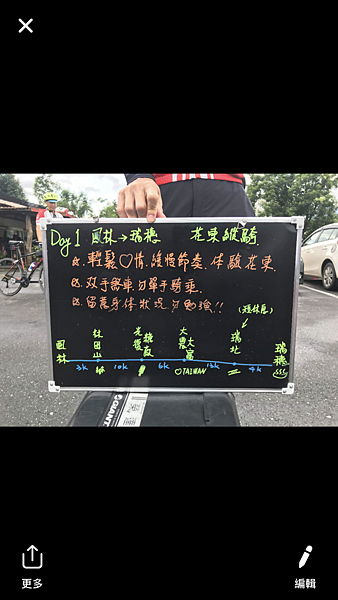 Day 1 鳳林→瑞穗 花東縱騎
☑. 輕鬆♡情.慢慢節奏.体驗花東.
☑. 双手騎車.勿單手騎乘.
☑. 留意身体狀況.勿勉強!!
(短休息)
鳳林 林田山 光復糖廠 大農大富 瑞北 瑞穗
3k 10k 6k ♡TAIWAN 13k 4k
GIANT
更多
編輯